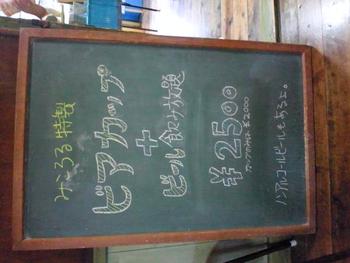 みころる特製
ビアカップ
+
ビール飲み放題
¥2500
カップのみは ¥2000
ノンアルコールビールもあるよ。